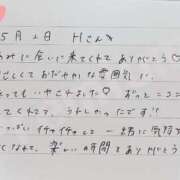 5月2日 Hさん
みに会いに来てくれて ありがとう♡
しくて おだやかな雰囲気に
っても いやされました♡ おっとこ
してくれて、うれしかったです!!
っぱい イチャイチャと 一緒に気持
なれて、楽しい時間を ありがとう